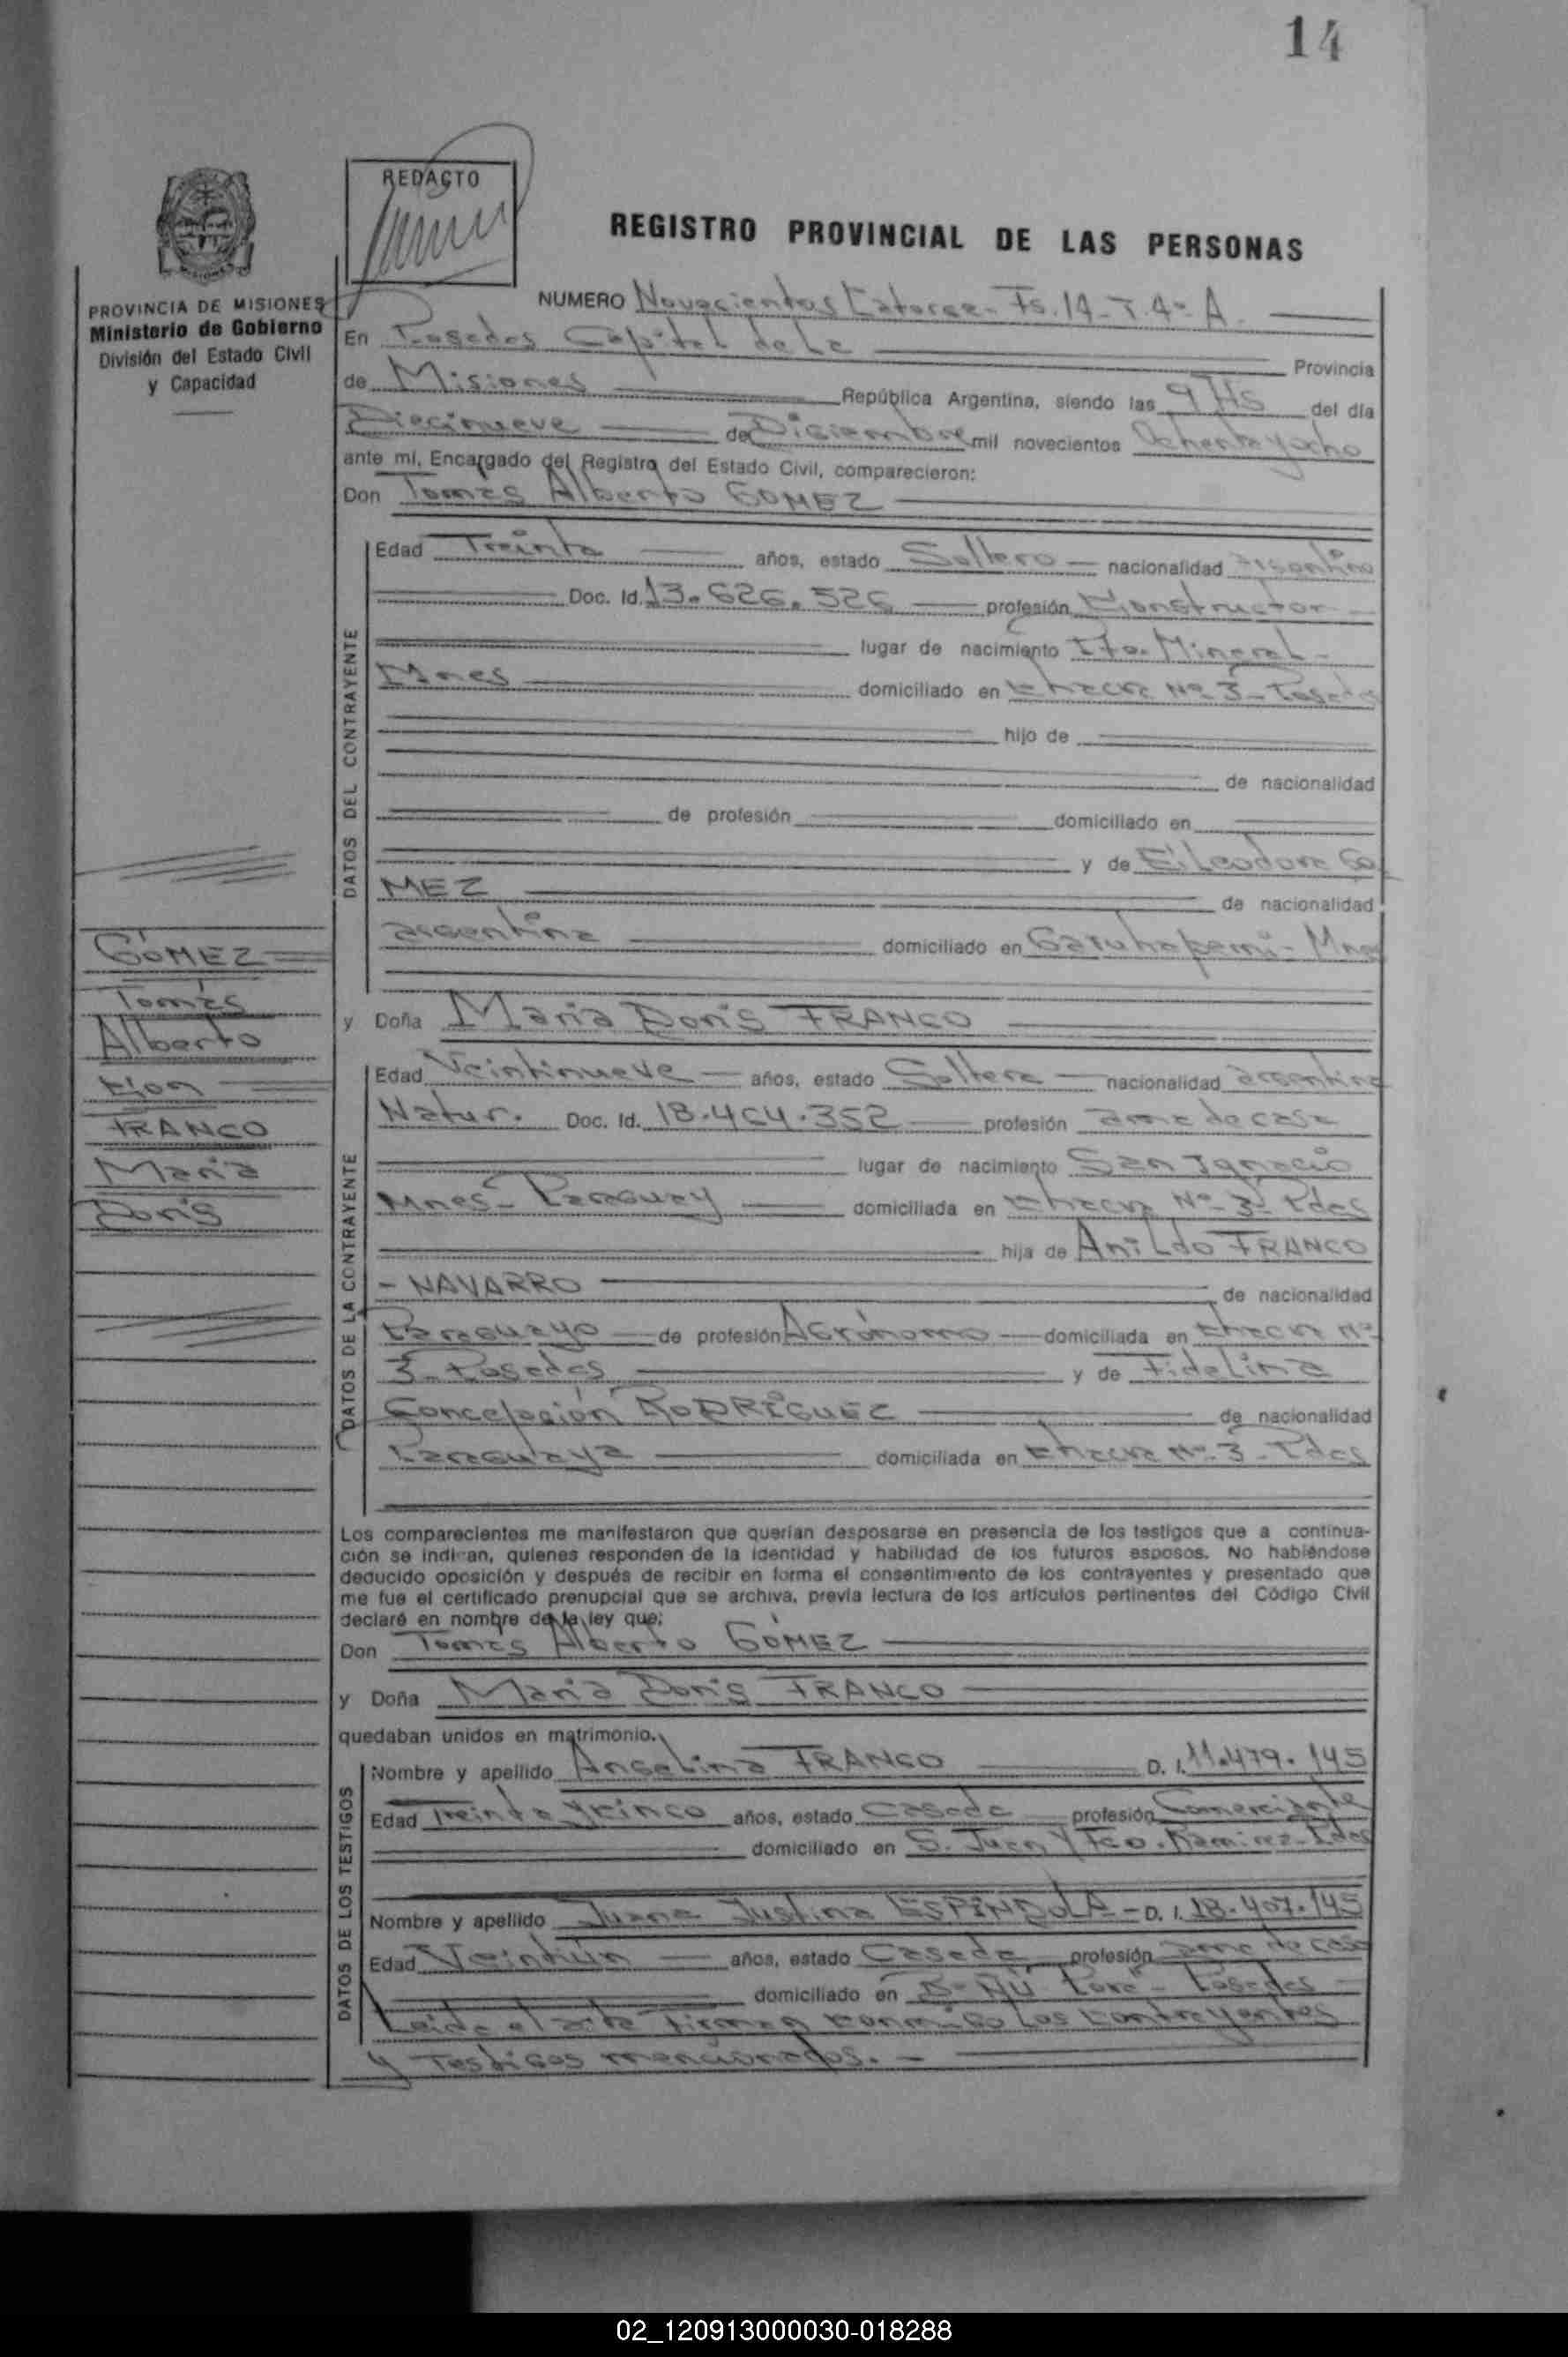 14
REDACTO
REGISTRO PROVINCIAL DE LAS PERSONAS
PROVINCIA DE MISIONES
Ministerio de Gobierno
División del Estado Civil
y Capacidad
NUMERO Novecientos Catorce - Fs. 14 - T. 4º A.
En Posadas Capital de la Provincia
de Misiones República Argentina, siendo las 9 Hs del día
Diecinueve de Diciembre mil novecientos Ochenta y ocho
ante mí, Encargado del Registro del Estado Civil, comparecieron:
Don Tomás Alberto GÓMEZ
DATOS DEL CONTRAYENTE
Edad Treinta años, estado Soltero nacionalidad argentino
Doc. Id. 13.626.526 profesión Constructor
lugar de nacimiento Pto. Mineral -
Mnes domiciliado en Chacra Nº 3 - Posadas
hijo de
de nacionalidad
de profesión domiciliado en
y de Eileodora GÓ
MEZ de nacionalidad
argentina domiciliado en Garuhapemi - Mnes
GÓMEZ
Tomás
Alberto
con
FRANCO
Maria
Doris
y Doña Maria Doris FRANCO
DATOS DE LA CONTRAYENTE
Edad Veintinueve años, estado Soltera nacionalidad argentina
Natur. Doc. Id. 18.464.352 profesión ama de casa
lugar de nacimiento San Ignacio
Mnes - Paraguay domiciliada en Chacra Nº 3 - Pdas
hija de Anildo FRANCO
- NAVARRO de nacionalidad
Paraguayo de profesión Agrónomo domiciliada en Chacra Nº
3 - Posadas y de Fidelina
Concepción RODRÍGUEZ de nacionalidad
Paraguaya domiciliada en Chacra Nº 3 - Pdas
Los comparecientes me manifestaron que querían desposarse en presencia de los testigos que a continua-
ción se indican, quienes responden de la identidad y habilidad de los futuros esposos. No habiéndose
deducido oposición y después de recibir en forma el consentimiento de los contrayentes y presentado que
me fue el certificado prenupcial que se archiva, previa lectura de los artículos pertinentes del Código Civil
declaré en nombre de la ley que:
Don Tomás Alberto GÓMEZ
y Doña Maria Doris FRANCO
quedaban unidos en matrimonio.
DATOS DE LOS TESTIGOS
Nombre y apellido Angelina FRANCO D. I. 11.479.145
Edad Treinta y cinco años, estado Casada profesión Comerciante
domiciliado en S. Juan y Fco. Ramirez - Pdas
Nombre y apellido Juana Justina ESPÍNDOLA - D. I. 18.407.145
Edad Veintiún años, estado Casada profesión ama de casa
domiciliado en Bº Ñú Porá - Posadas
Leida el acta firman conmigo los contrayentes
y testigos mencionados. -
02_120913000030-018288